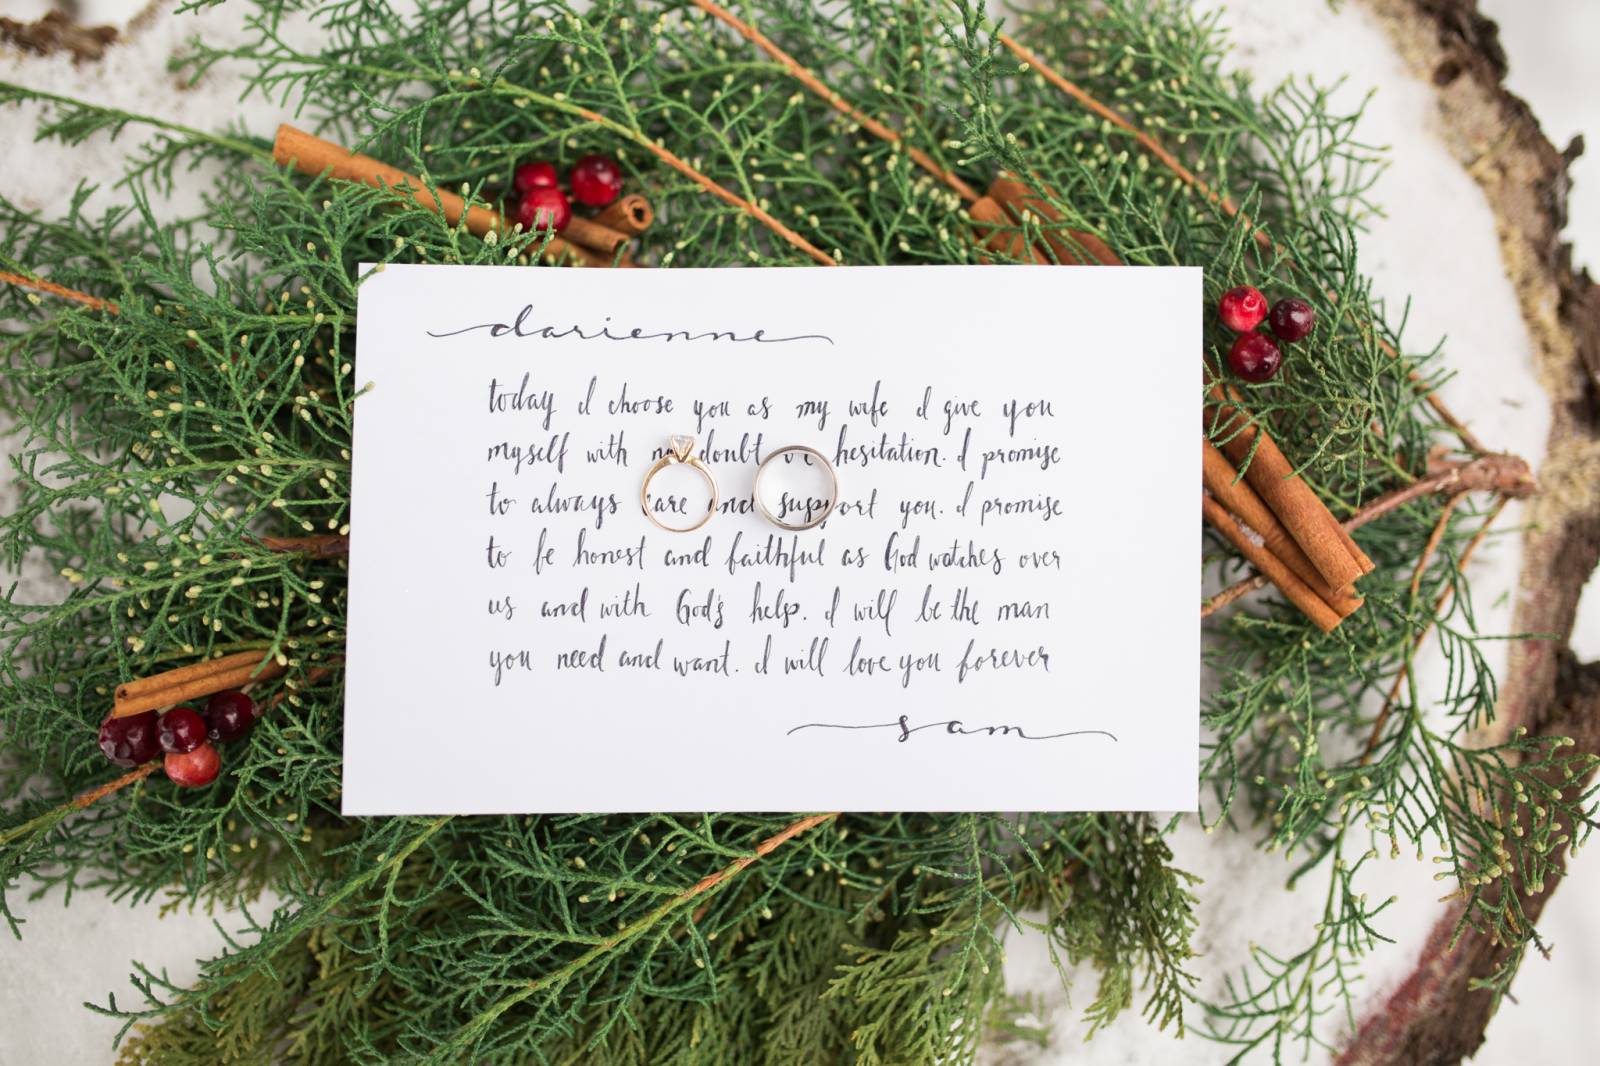 darienne
today I choose you as my wife I give you
myself with no doubt or hesitation. I promise
to always care and support you. I promise
to be honest and faithful as God watches over
us and with God's help. I will be the man
you need and want. I will love you forever
sam